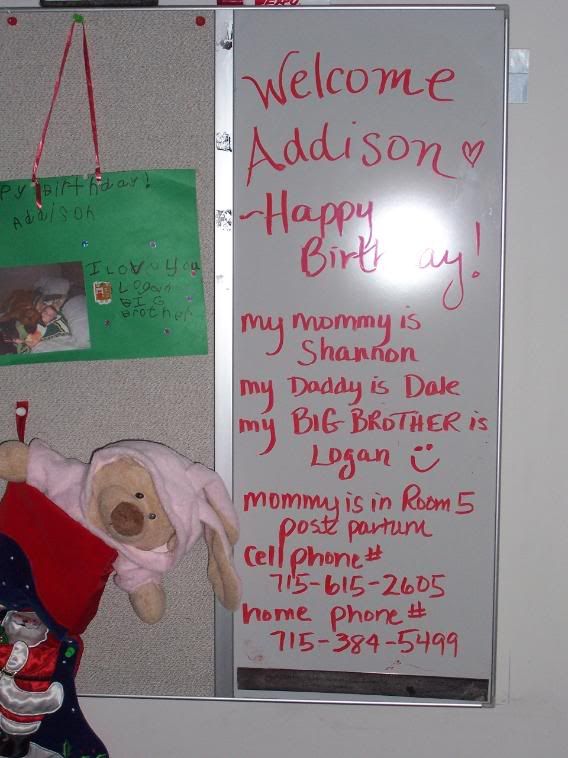 Welcome
Addison ♡
~Happy
Birthday!
my mommy is
Shannon
my Daddy is Dale
my BIG BROTHER is
Logan
mommy is in Room 5
post partum
Cell phone #
715-615-2605
home phone #
715-384-5499
py Birthday!
Addison
I Love You
Logan
BIG
brother
EXPO